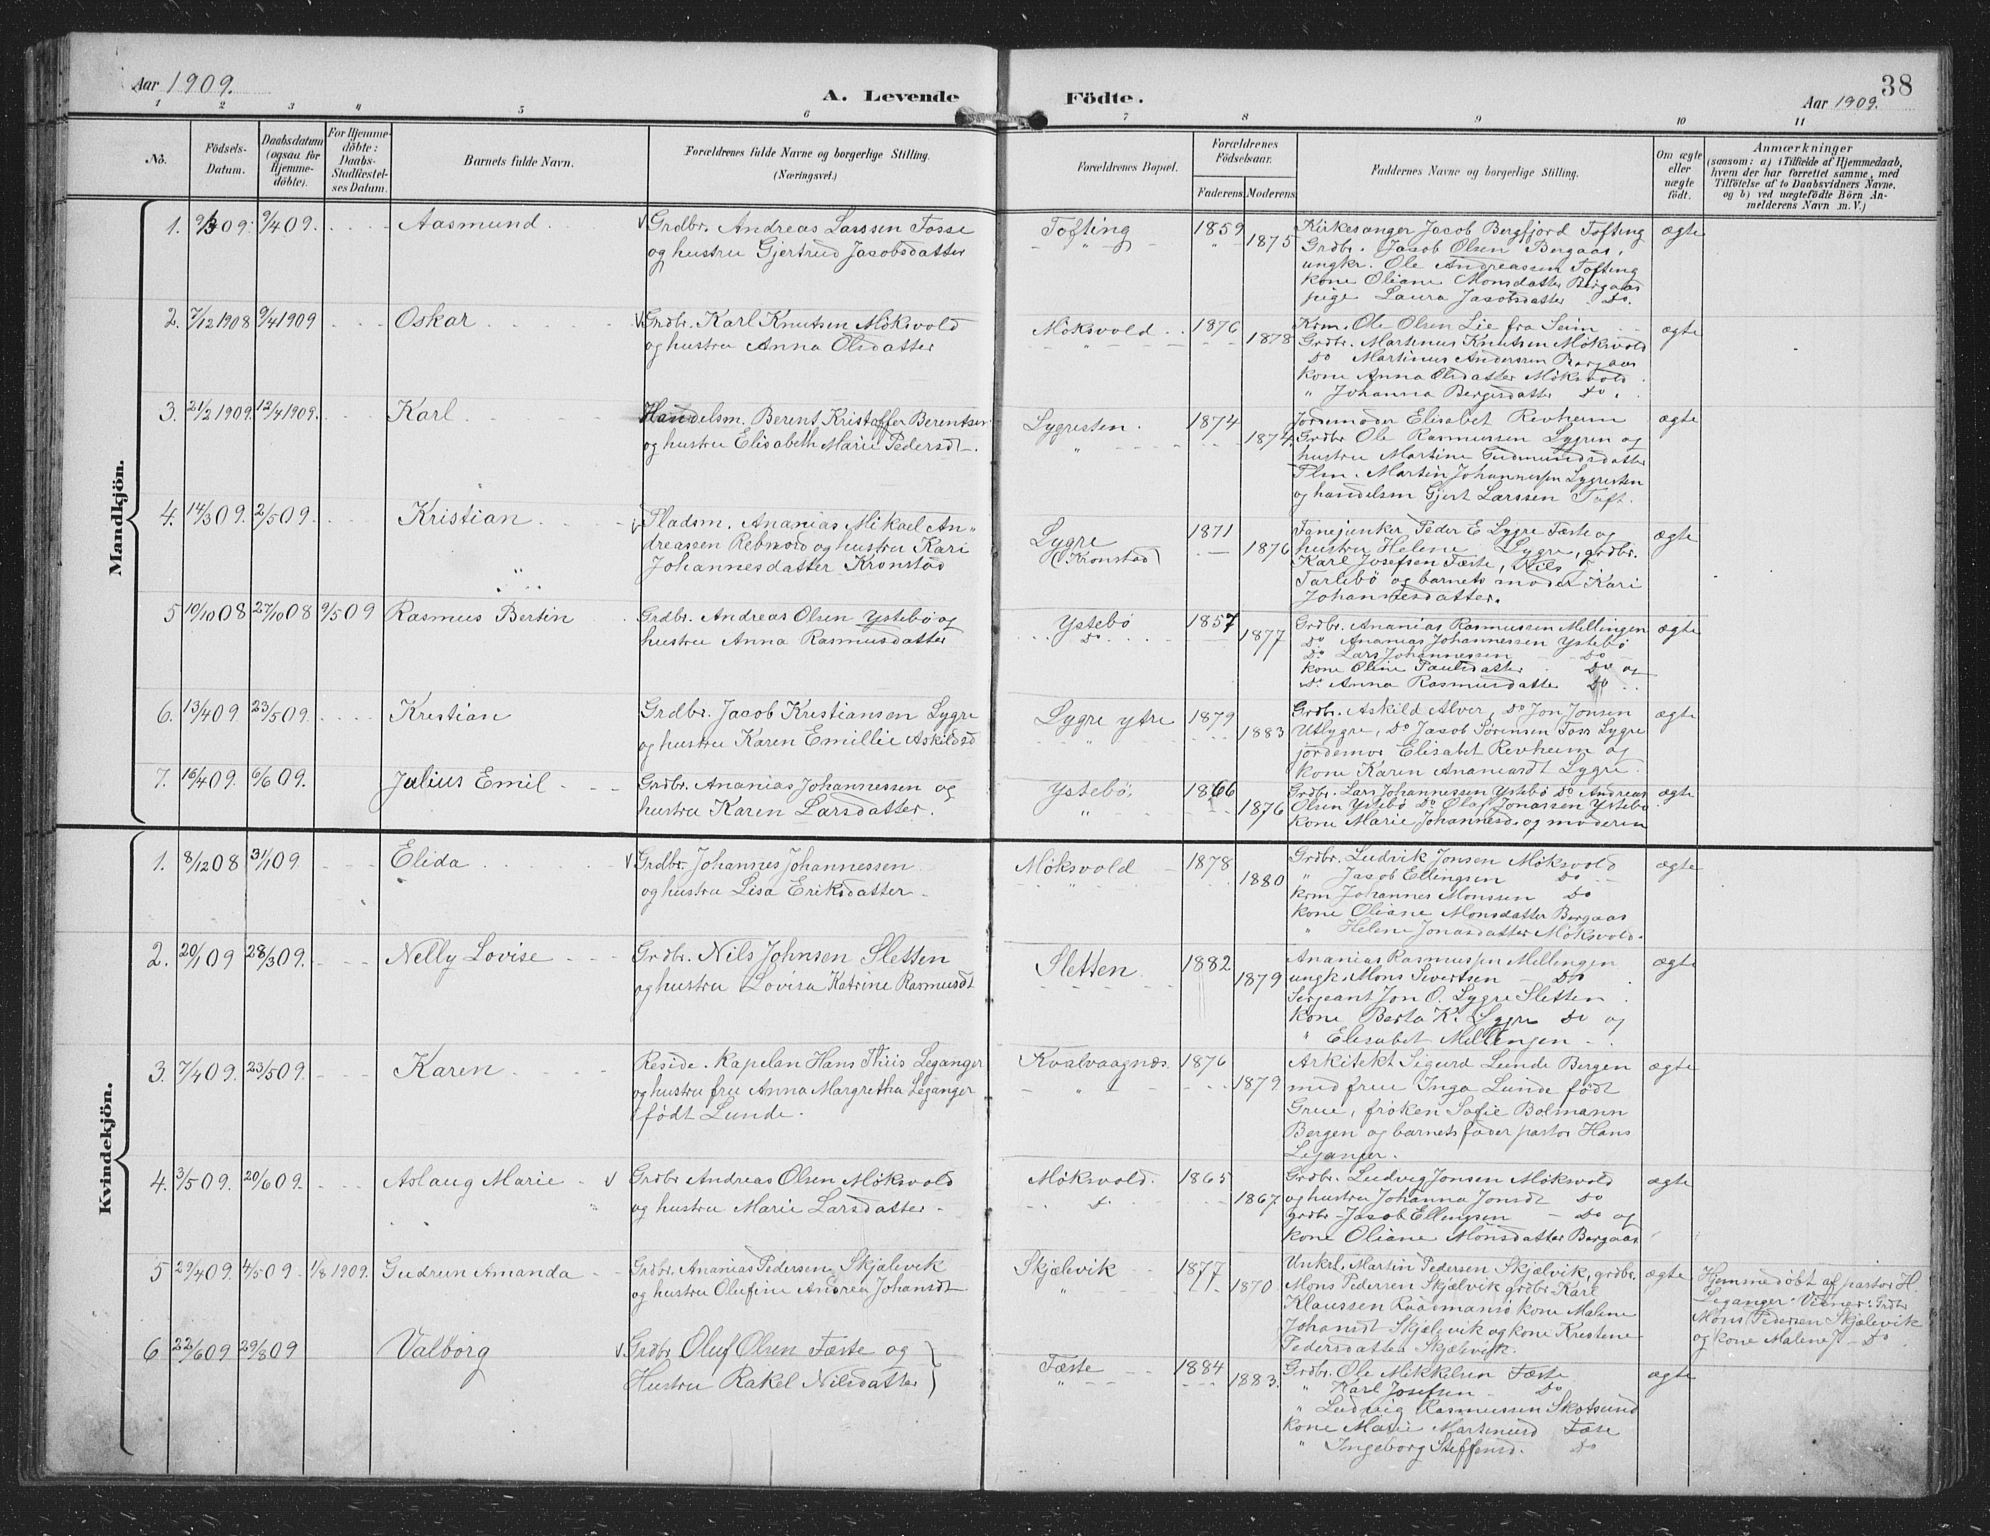 Aar 1909.
A. Levende Födte.
38
Aar 1909.
1 2 3 4 5 6 7 8 9 10 11
No.
Födsels-Datum.
Daabsdatum (ogsaa for Hjemme-döbte).
For Hjemme-döbte: Daabs-Stadfæstel-ses Datum.
Barnets fulde Navn.
Forældrenes fulde Navne og borgerlige Stilling. (Næringsvei.)
Forældrenes Bopæl.
Forældrenes Födselsaar.
Faderens Moderens
Faddernes Navne og borgerlige Stilling.
Om ægte eller uægte födt.
Anmærkninger
(saasom: a) i Tilfælde af Hjemmedaab, hvem der har forrettet samme, med Tilföielse af to Daabsvidners Navne, og b) ved uægtefödte Börn An-melderens Navn m. V.)
Mandkjön.
1. 9/3 09. 9/4 09. Aasmund
Grdbr. Andreas Larssen Fosse
og hustru Gjertrud Jacobsdatter
Tofting 1859 1875
Kirkesanger Jacob Bergfjord Tofting
Grdbr. Jacob Olsen Bergaas,
ungkr. Ole Andreassen Tofting
kone Oliane Monsdatter Bergaas
pige Laura Jacobsdatter Do.
ægte
2. 7/12 1908 9/4 1909 Oskar
Grdbr. Karl Knutsen Møksvold
og hustru Anna Olsdatter
Møksvold 1876 1878
Krm. Ole Olsen Lie fra Seim
Grdbr. Martinus Knutsen Møksvold
Do Martinus Anderssen Bergaas
kone Anna Olsdatter Møksvold
" Johanna Bergesdatter Do.
ægte
3. 21/2 1909. 12/4 1909. Karl
Handelsm. Berent Kristoffer Berentsen
og hustru Elisabeth Marie Pedersdt.
Lygresten. 1874 1874
Jordemoder Elisabet Revheim
Grdbr Ole Rasmussen Lygren og
hustru Martine Gudmundsdatter
Plm. Martin Johannessen Lygresten
og handelsm Gjert Larssen Toft.
ægte
4. 14/3 09. 2/5 09. Kristian
Pladsm. Ananias Mikael An-
dreassen Rebnord og hustru Kari
Johannesdatter Kronstad
Lygre (Kronstad) 1871 1876
Fanejunker Peder E Lygre Fæste og
hustru Helene Lygre, grdbr.
Karl Josefsen Fæste, Nils
Tarlebö og barnets moder Kari
Johannesdatter.
ægte
5 10/10 08 27/10 08 9/5 09 Rasmus Bertin
Grdbr. Andreas Olsen Ystebö og
hustru Anna Rasmusdatter
Ystebö Do 1857 1877
Grdbr. Ananias Rasmussen Mellingen
Do Ananias Johannessen Ystebö
Do Lars Johannessen Do
kone Oline Paulsdatter Do og
Do Anna Rasmusdatter Do
ægte
6. 13/4 09. 23/5 09. Kristian
Grdbr. Jacob Kristiansen Lygre
og hustru Karen Emillie Askildsd
Lygre ytre 1879 1883
Grdbr. Askild Alver, Do Jon Jonsen
Utlygre, Do Jacob Sørensen Foss Lygre
jordemor Elisabet Revheim og
kone Karen Ananiasdt Lygre.
ægte
7. 16/4 09. 6/6 09. Julius Emil
Grdbr. Ananias Johannessen og
hustru Karen Larsdatter.
Ystebö, 1866 1876
Grdbr. Lars Johannessen Ystebö Do Andreas
Olsen Ystebö Do Olaf Jonassen Ystebö
kone Marie Johannesd. og moderen
ægte
Kvindekjön.
1. 8/12 08 31/1 09. Elida
Grdbr. Johannes Johannessen
og hustru Lisa Eriksdatter
Møksvold 1878 1880
Grdbr. Ludvik Jonsen Møksvold
" Jacob Ellingsen Do
krm Johannes Monssen Do
kone Oliane Monsdatter Bergaas
" Helene Jonasdatter Møksvold.
ægte
2. 20/1 09 28/3 09. Nelly Lovise
Grdbr. Nils Johnsen Sletten
og hustru Lovisa Katrine Rasmusdt
Sletten. 1882 1879
Ananias Rasmussen Mellingen
ungk. Mons Sivertsen Do
Sergeant Jon O. Lygre Sletten
kone Berta K. Lygre Do og
" Elisabet Mellingen
ægte
3. 7/4 09. 23/5 09. Karen
Reside. kapelan Hans Thiis Leganger
og hustru fru Anna Margretha Leganger
født Lunde.
Kvalvaagnæs 1876 1879
Arkitekt Sigurd Lunde Bergen
med frue Inga Lunde født
Grue, frøken Sofie Bolmann
Bergen og barnets fader pastor Hans
Leganger.
ægte
4. 3/5 09. 20/6 09. Aslaug Marie
Grdbr Andreas Olsen Møksvold
og hustru Marie Larsdatter
Møksvold. Do 1865 1867
Grdbr. Ludvig Jonsen Møksvold
og hustru Johanna Jonsdt Do
grdbr. Jacob Ellingsen Do og
kone Oliane Monsdatter Bergaas
ægte
5 29/4 09. 4/5 09. 1/8 1909. Gudrun Amanda
Grdbr. Ananias Pedersen Skjælevik
og hustru Olufine Andrea Johansdt
Skjælevik 1877 1870
Unkel. Martin Pedersen Skjælvik, grdbr.
Mons Pedersen Skjælvik grdbr Karl
Klaussen Raadmansö kone Malene
Johansdt Skjælevik og kone Kristene
Pedersdatter Skjælevik.
ægte
Hjemmedøbt af pastor H.
Leganger. Vidner: Grdbr
Mons Pedersen Skjælevik
og kone Malene J. Do
6 22/6 09 29/8 09 Valborg
Grdbr Oluf Olsen Fæste og
Hustru Rakel Nilsdatter
Fæste 1884 1883.
Grdbr. Ole Mikkelsen Fæste
" Karl Josefsen Do
" Ludvig Rasmussen Skotsund
kone Marie Martinusd Fæste
" Ingeborg Steffensd. Do
ægte